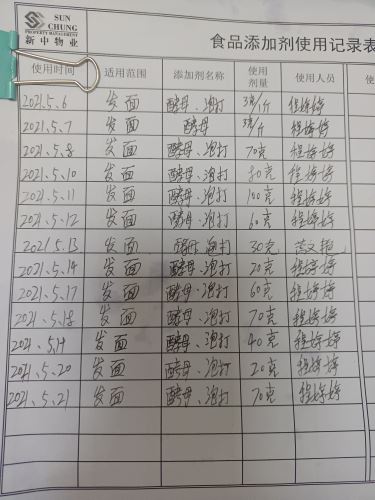 SUN
CHUNG
PROPERTY MANAGEMENT
新中物业
食品添加剂使用记录表
使用时间 适用范围 添加剂名称 使用剂量 使用人员
2021.5.6 发面 酵母、泡打 3克/斤 程婷婷
2021.5.7 发面 酵母 3克/斤 程婷婷
2021.5.8 发面 酵母、泡打 70克 程婷婷
2021.5.10 发面 酵母、泡打 80克 程婷婷
2021.5.11 发面 酵母、泡打 100克 程婷婷
2021.5.12 发面 酵母、泡打 60克 程婷婷
2021.5.13 发面 酵母、泡打 30克
2021.5.14 发面 酵母、泡打 20克 程婷婷
2021.5.17 发面 酵母、泡打 60克 程婷婷
2021.5.18 发面 酵母、泡打 70克 程婷婷
2021.5.19 发面 酵母、泡打 40克 程婷婷
2021.5.20 发面 酵母、泡打 20克 程婷婷
2021.5.21 发面 酵母、泡打 70克 程婷婷